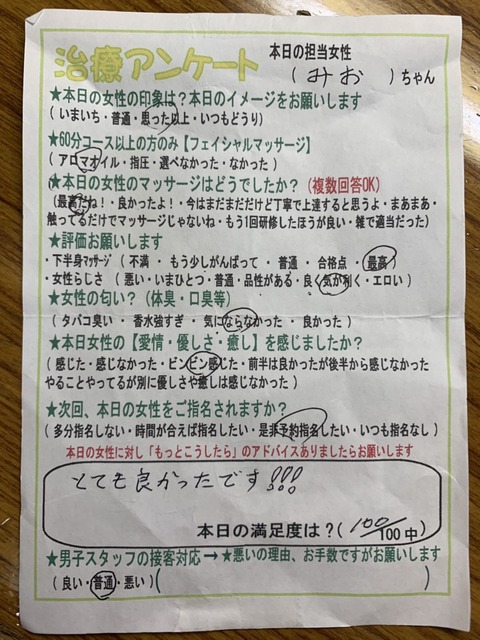 治療アンケート
本日の担当女性
( みお )ちゃん
★本日の女性の印象は？本日のイメージをお願いします
( いまいち・普通・思った以上・いつもどうり)
★60分コース以上の方のみ【フェイシャルマッサージ】
( アロマオイル・指圧・選べなかった・なかった )
★本日の女性のマッサージはどうでしたか？ (複数回答OK)
(最高だね！・良かったよ！・今はまだまだだけど丁寧で上達すると思うよ・まあまあ・
触ってるだけでマッサージじゃないね・もう1回研修したほうが良い・雑で適当だった)
★評価お願いします
・下半身マッサージ ( 不満 ・ もう少しがんばって ・ 普通 ・ 合格点 ・ 最高 )
・女性らしさ ( 悪い・いまひとつ・普通・品性がある・良く気が利く・エロい )
★女性の匂い？ (体臭・口臭等)
( タバコ臭い ・ 香水強すぎ ・ 気にならなかった ・ 良かった )
★本日女性の【愛情・優しさ・癒し】を感じましたか？
( 感じた・感じなかった・ビンビン感じた・前半は良かったが後半から感じなかった
やることやってるが別に優しさや癒しは感じなかった )
★次回、本日の女性をご指名されますか？
( 多分指名しない・時間が合えば指名したい・是非予約指名したい・いつも指名なし )
本日の女性に対し「もっとこうしたら」のアドバイスありましたらお願いします
とても良かったです!!!
本日の満足度は？( 100/100中 )
★男子スタッフの接客対応→★悪いの理由、お手数ですがお願いします
( 良い・普通・悪い )( )